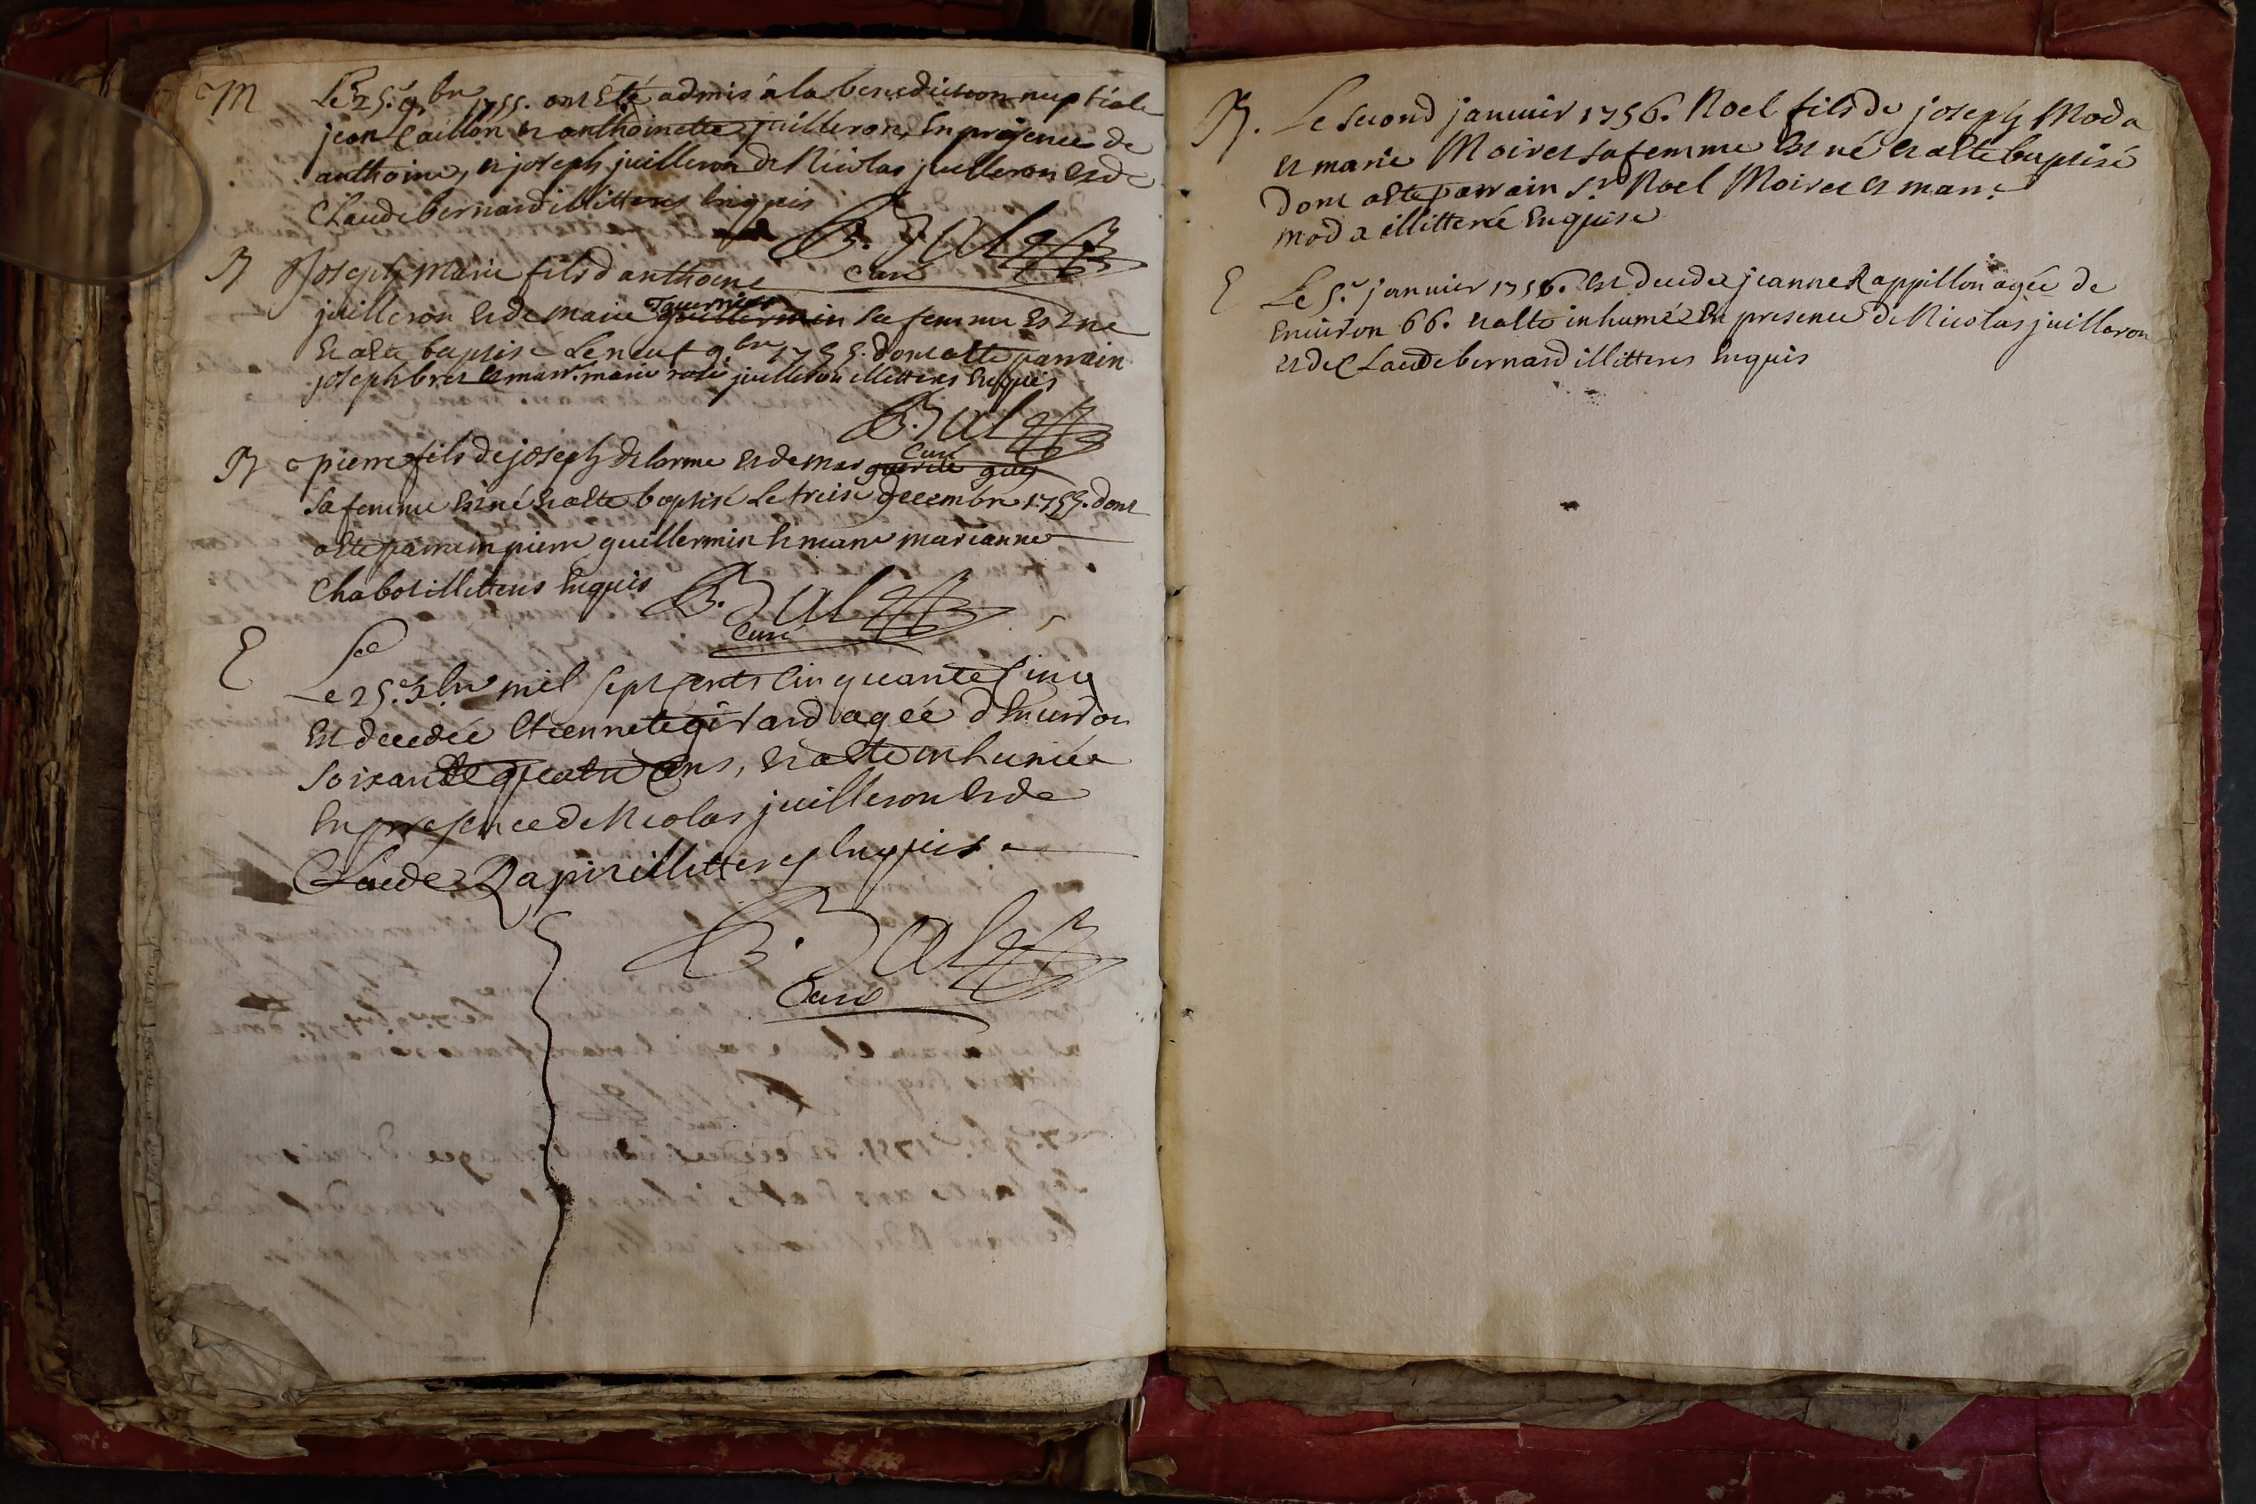 M
Le 25.e 9.bre 1755. ont été admis à la benediction nuptiale
jean Caillon et anthoinette juilleron, En presence de
anthoine, et joseph juilleron de Nicolas juilleron et de
Claude bernard illitteres Enquis
Curé
B
joseph marie fils d anthoine
juilleron et de marie guillermin sa femme Est né
Tavernier
et a été baptisé Le neuf 9.bre 1755. dont a été parrain
joseph bret et marr.e marie rose juilleron illitteres Enquis
Curé
B
pierre fils de joseph delorme et de marguerite guy
sa femme Est né et a été baptisé Le treise decembre 1755. dont
a été parrain pierre guillermin et marr.e marianne
Chabot illitteres Enquis
Curé
E
Le 25.e Xbre mil sept cents cinquante cinq
Est decedée Etiennete girard agée d Environ
soixante quatre ans, et a été inhumée
En presence de Nicolas juilleron et de
Claude Rapin illitteres Enquis
Curé
B. Le second janvier 1756. Noel fils de joseph Moda
et marie Moiret sa femme Est né et a été baptisé
dont a été parrain s.r Noel Moiret et marr.e
moda illitteré Enquise
E
Le 5.e janvier 1756. Est decedée jeanne Rappillon agée de
Environ 66. et a été inhumée En presence de Nicolas juilleron
et de Claude bernard illitteres Enquis